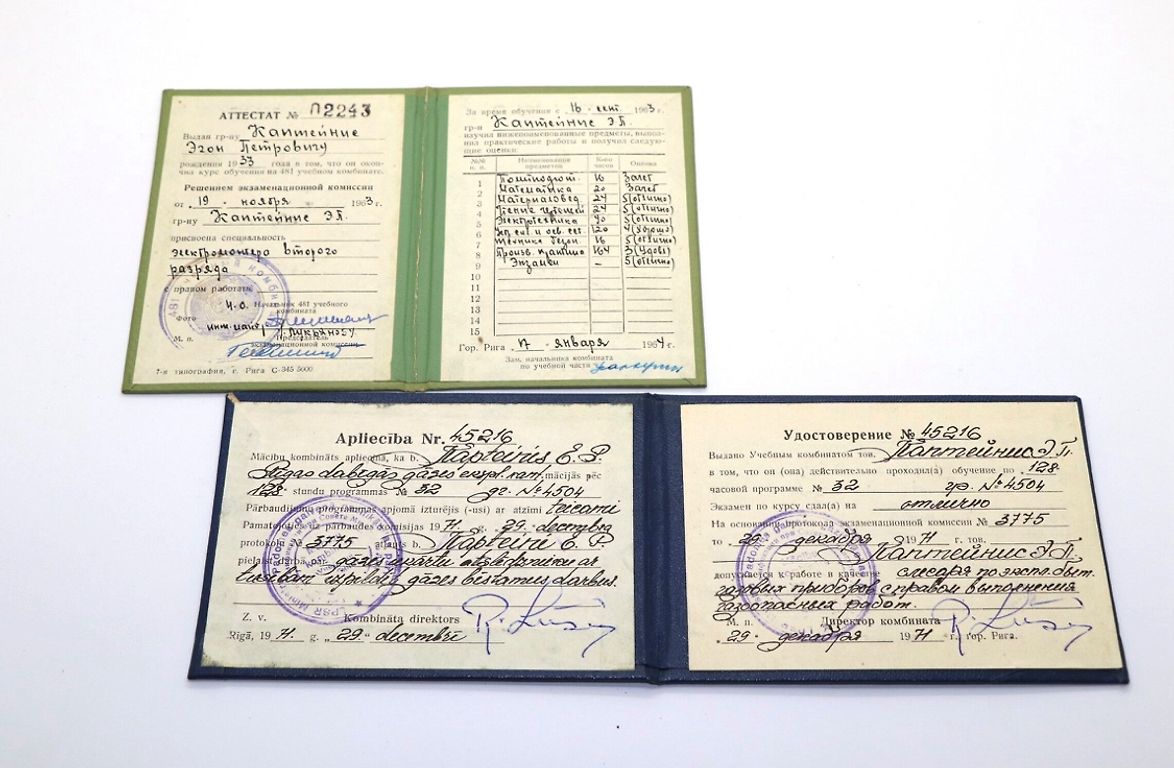 АТТЕСТАТ № П2243
Выдан гр-ну Каптейние
Эгон Петровичу
рождения 1933 года в том, что он окон-
чил курс обучения на 481 учебном комбинате.
Решением экзаменационной комиссии
от 19 - ноября 1963 г.
гр-ну Каптейние Э.П.
присвоена специальность
электромонтера второго
разряда
с правом работать
И.О. Начальник 481 учебного
комбината
Фото инж. майор
М. п. Председатель
экзаменационной комиссии
7-я типография, г. Рига С-345 5000
За время обучения с 16 - сент. 1963 г.
гр-н Каптейние Э.П.
изучил нижепоименованные предметы, выпол-
нил практические работы и получил следую-
щие оценки:
№№ п. п. Наименование предметов К-во часов Оценка
1 Политподгот. 16 Зачет
2 Математика 20 Зачет
3 Материаловед. 24 5 (отлично)
4 Чтение чертежей 24 5 (отлично)
5 Электротехника 90 5 (отлично)
6 120 4 (хорошо)
7 Техника безоп. 16 5 (отлично)
8 Произв. практика 164 3 (удовл)
9 Экзамен - 5 (отлично)
10
11
12
13
14
15
Гор. Рига 17 - января 1964 г.
Зам. начальника комбината
по учебной части
Apliecība Nr. 45216
Mācību kombināts apliecina, ka b. Kapteinis E. P.
Rīgas dabasgāzes ekspl. kant. mācījās pēc
128 stundu programmas № 32 gr. № 4504
Pārbaudījumu programmas apjomā izturējis (-usi) ar atzīmi teicami
Pamatojoties uz pārbaudes komisijas 1971. g. 29. decembra
protokola № 3775 atļauts b. Kapteini E. P.
pielaist darbā par gāzes iekārtu atslēdznieku ar
tiesībām izpildīt gāzes bīstamus darbus.
Z. v. Kombināta direktors
Rīgā, 1971. g. „29.“ decembrī
Удостоверение № 45216
Выдано Учебным комбинатом тов. Каптейнис Э.П.
в том, что он (она) действительно проходил(а) обучение по 128-
часовой программе № 32 гр. № 4504
Экзамен по курсу сдал(а) на отлично
На основании протокола экзаменационной комиссии № 3775
то „29“ декабря 1971 г. тов.
Каптейнис Э.П.
допускается к работе в качестве слесаря по экспл. быт.
газовых приборов с правом выполнения
газоопасных работ.
М. п. Директор комбината
„29“ декабря 1971 г., гор. Рига.